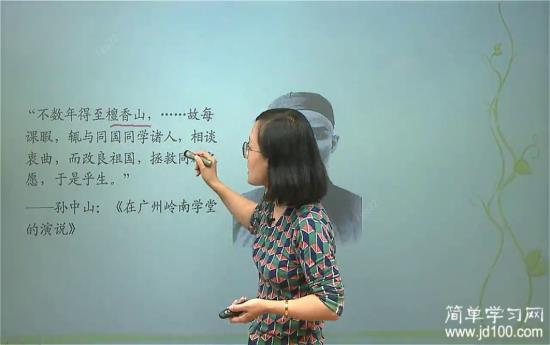 “不数年得至檀香山，……故每
课暇，辄与同国同学诸人，相谈
衷曲，而改良祖国，拯救同
愿，于是乎生。”
——孙中山：《在广州岭南学堂
的演说》
简单学习网
www.jd100.com